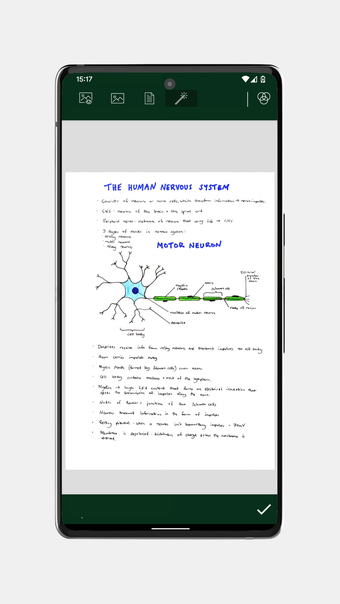 15:17
THE HUMAN NERVOUS SYSTEM
Consists of neurons or nerve cells, which transform information as nerve impulses
CNS: neurons of the brain + the spinal cord
Peripheral nerves: network of neurons that carry info to CNS
3 types of neurons in nervous system:
sensory neurons
motor neurons
relay neurons
MOTOR NEURON
myelin sheath
axon
Schwann cells
node of ranvier
nucleus of motor neuron
dendrites
cell body
Dendrites receive info from relay neurons and transmit impulses to cell body
Axon carries impulses away
Myelin sheath (formed by Schwann cells) covers axon
Cell body contains nucleus + most of the cytoplasm
Myelin is high lipid content that forms an electrical insulation that
speeds the transmission of impulses along the axon
Nodes of Ranvier: junctions of two Schwann cells
Neurons transmit information in the form of impulses
Resting potential: when a neuron isn't transmitting impulses
Membrane is
of charge across the membrane is